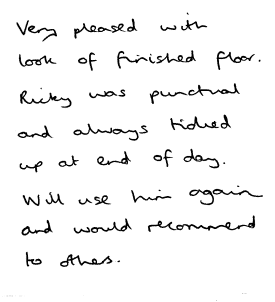 Very pleased with
look of finished floor.
Ricky was punctual
and always tidied
up at end of day.
Will use him again
and would recommend
to others.